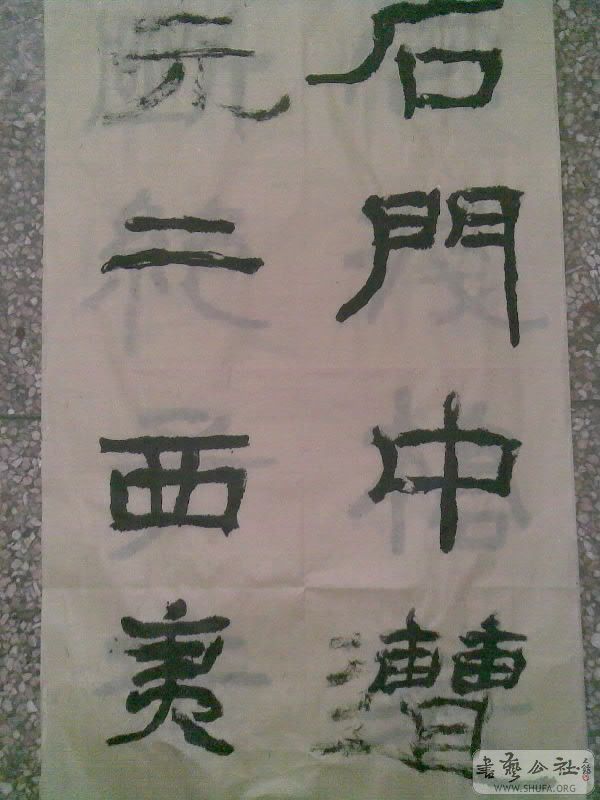 石門中遭
元二西夷
書藝公社
WWW.SHUFA.ORG